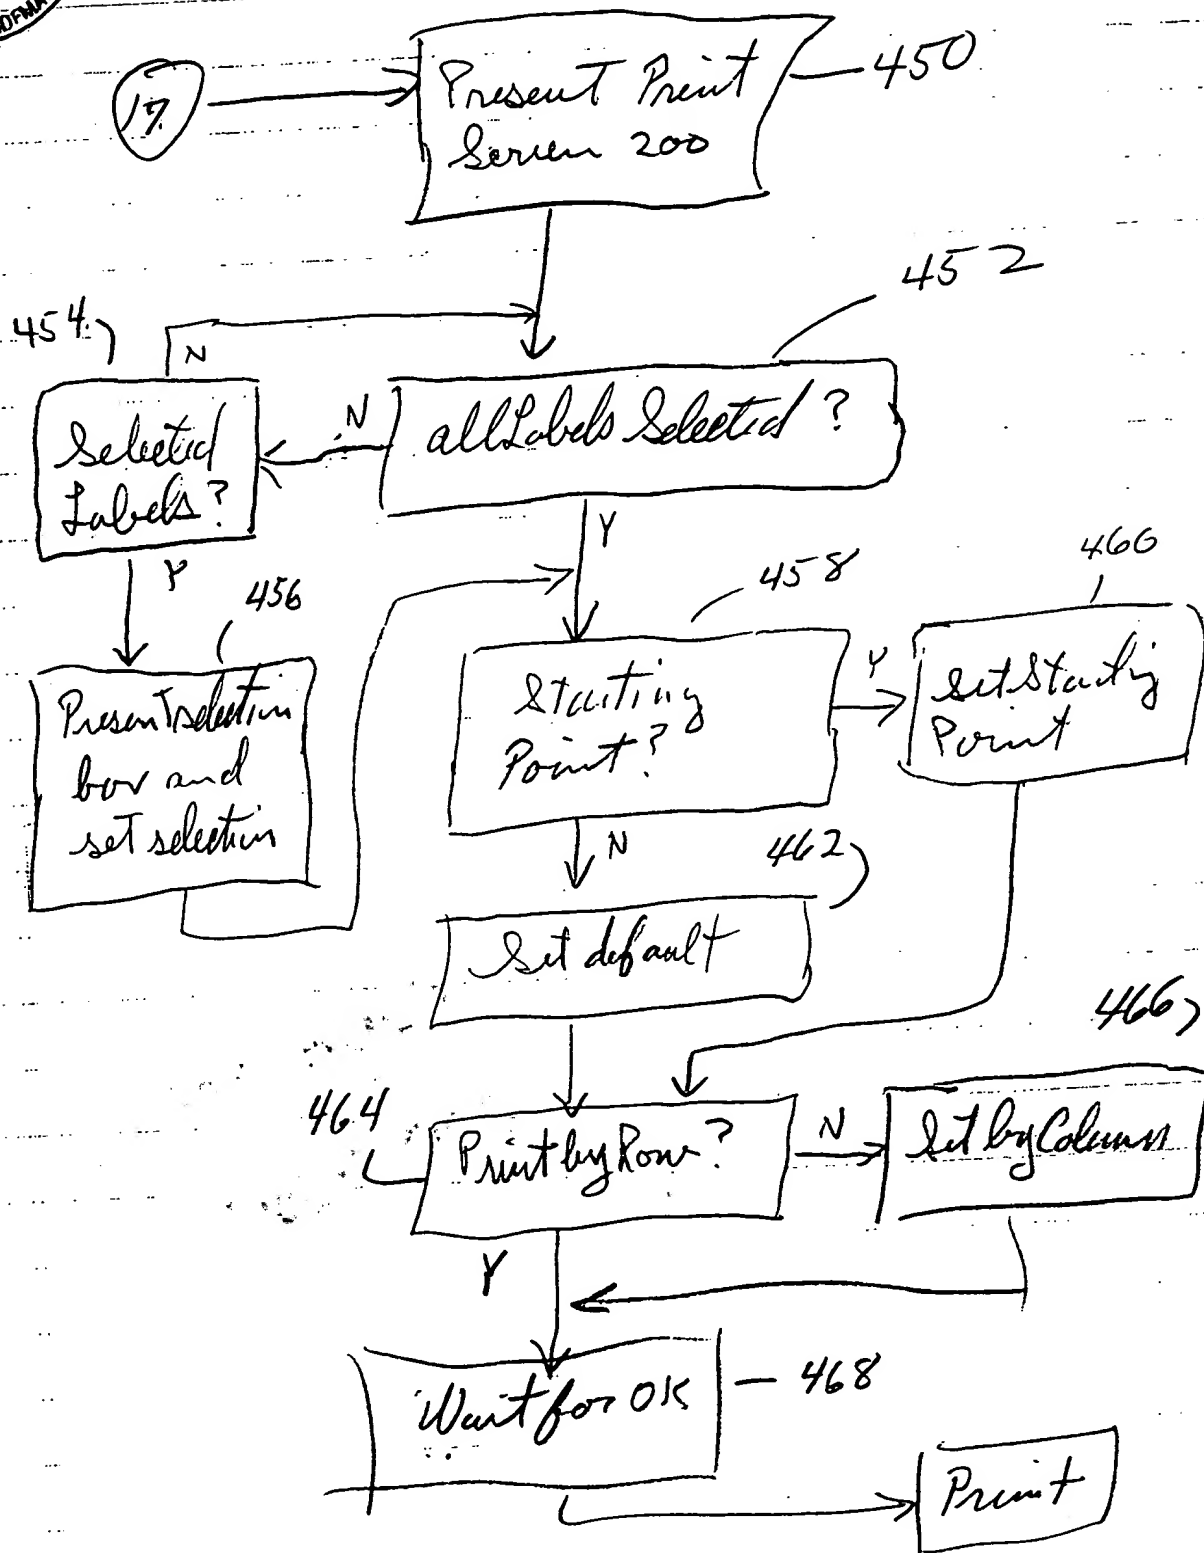 17
Present Print
Screen 200
450
452
454
N
all Labels Selected ?
N
Selected
Labels?
Y
Y
456
458
460
Present selection
box and
set selection
Starting
Point?
Y
Set Starting
Point
N
462
Set default
466
464
Print by Row?
N
Set by Column
Y
Wait for OK
468
Print